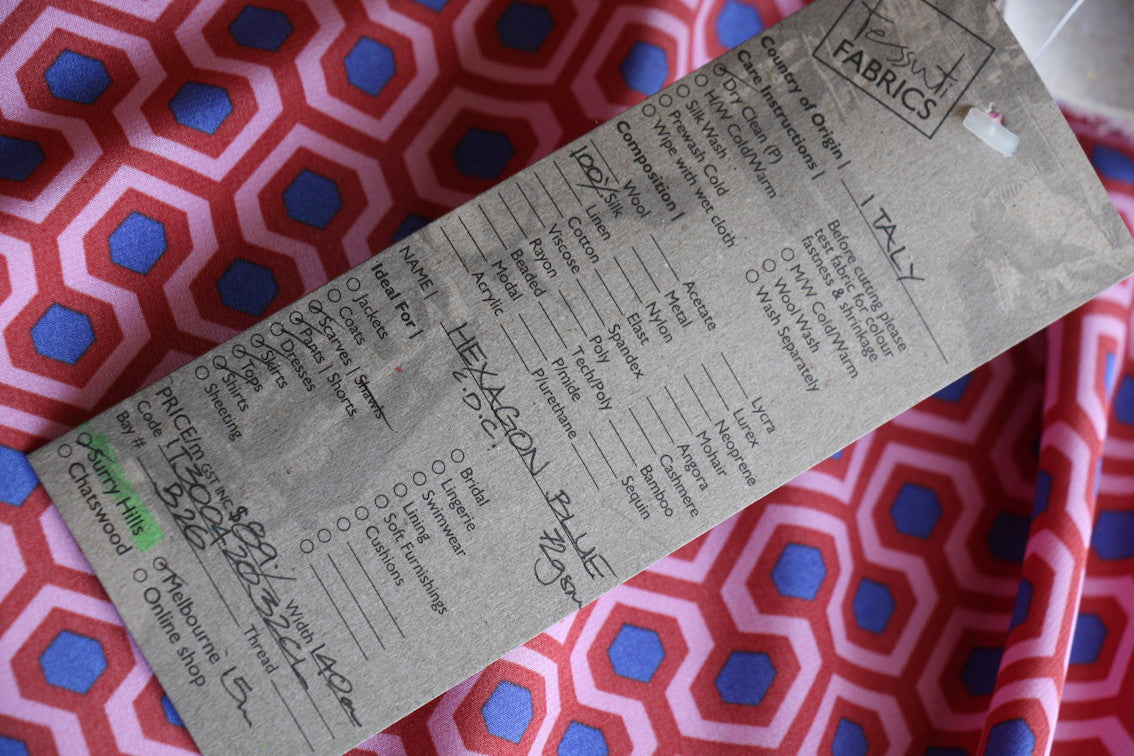 Tessuti
FABRICS
Country of Origin | ITALY
Care Instructions |
Dry Clean (P)
H/W Cold/Warm
Silk Wash
Prewash Cold
Wipe with wet cloth
Before cutting please
test fabric for colour
fastness & shrinkage
M/W Cold/Warm
Wool Wash
Wash Separately
Composition |
Wool
100% Silk
Linen
Cotton
Viscose
Rayon
Beaded
Modal
Acrylic
Acetate
Metal
Nylon
Elast
Spandex
Poly
Tech/Poly
P/mide
P/urethane
Lycra
Lurex
Neoprene
Mohair
Angora
Cashmere
Bamboo
Sequin
NAME | HEXAGON BLUE
C.D.C. 72gsm
Ideal For |
Jackets
Coats
Scarves | Shawls
Pants | Shorts
Dresses
Skirts
Tops
Shirts
Sheeting
Bridal
Lingerie
Swimwear
Lining
Soft Furnishings
Cushions
PRICE/m GST INC $89/ Width 140cm
Code
Thread
Bay # B26
Surry Hills
Chatswood
Melbourne - 15m
Online shop